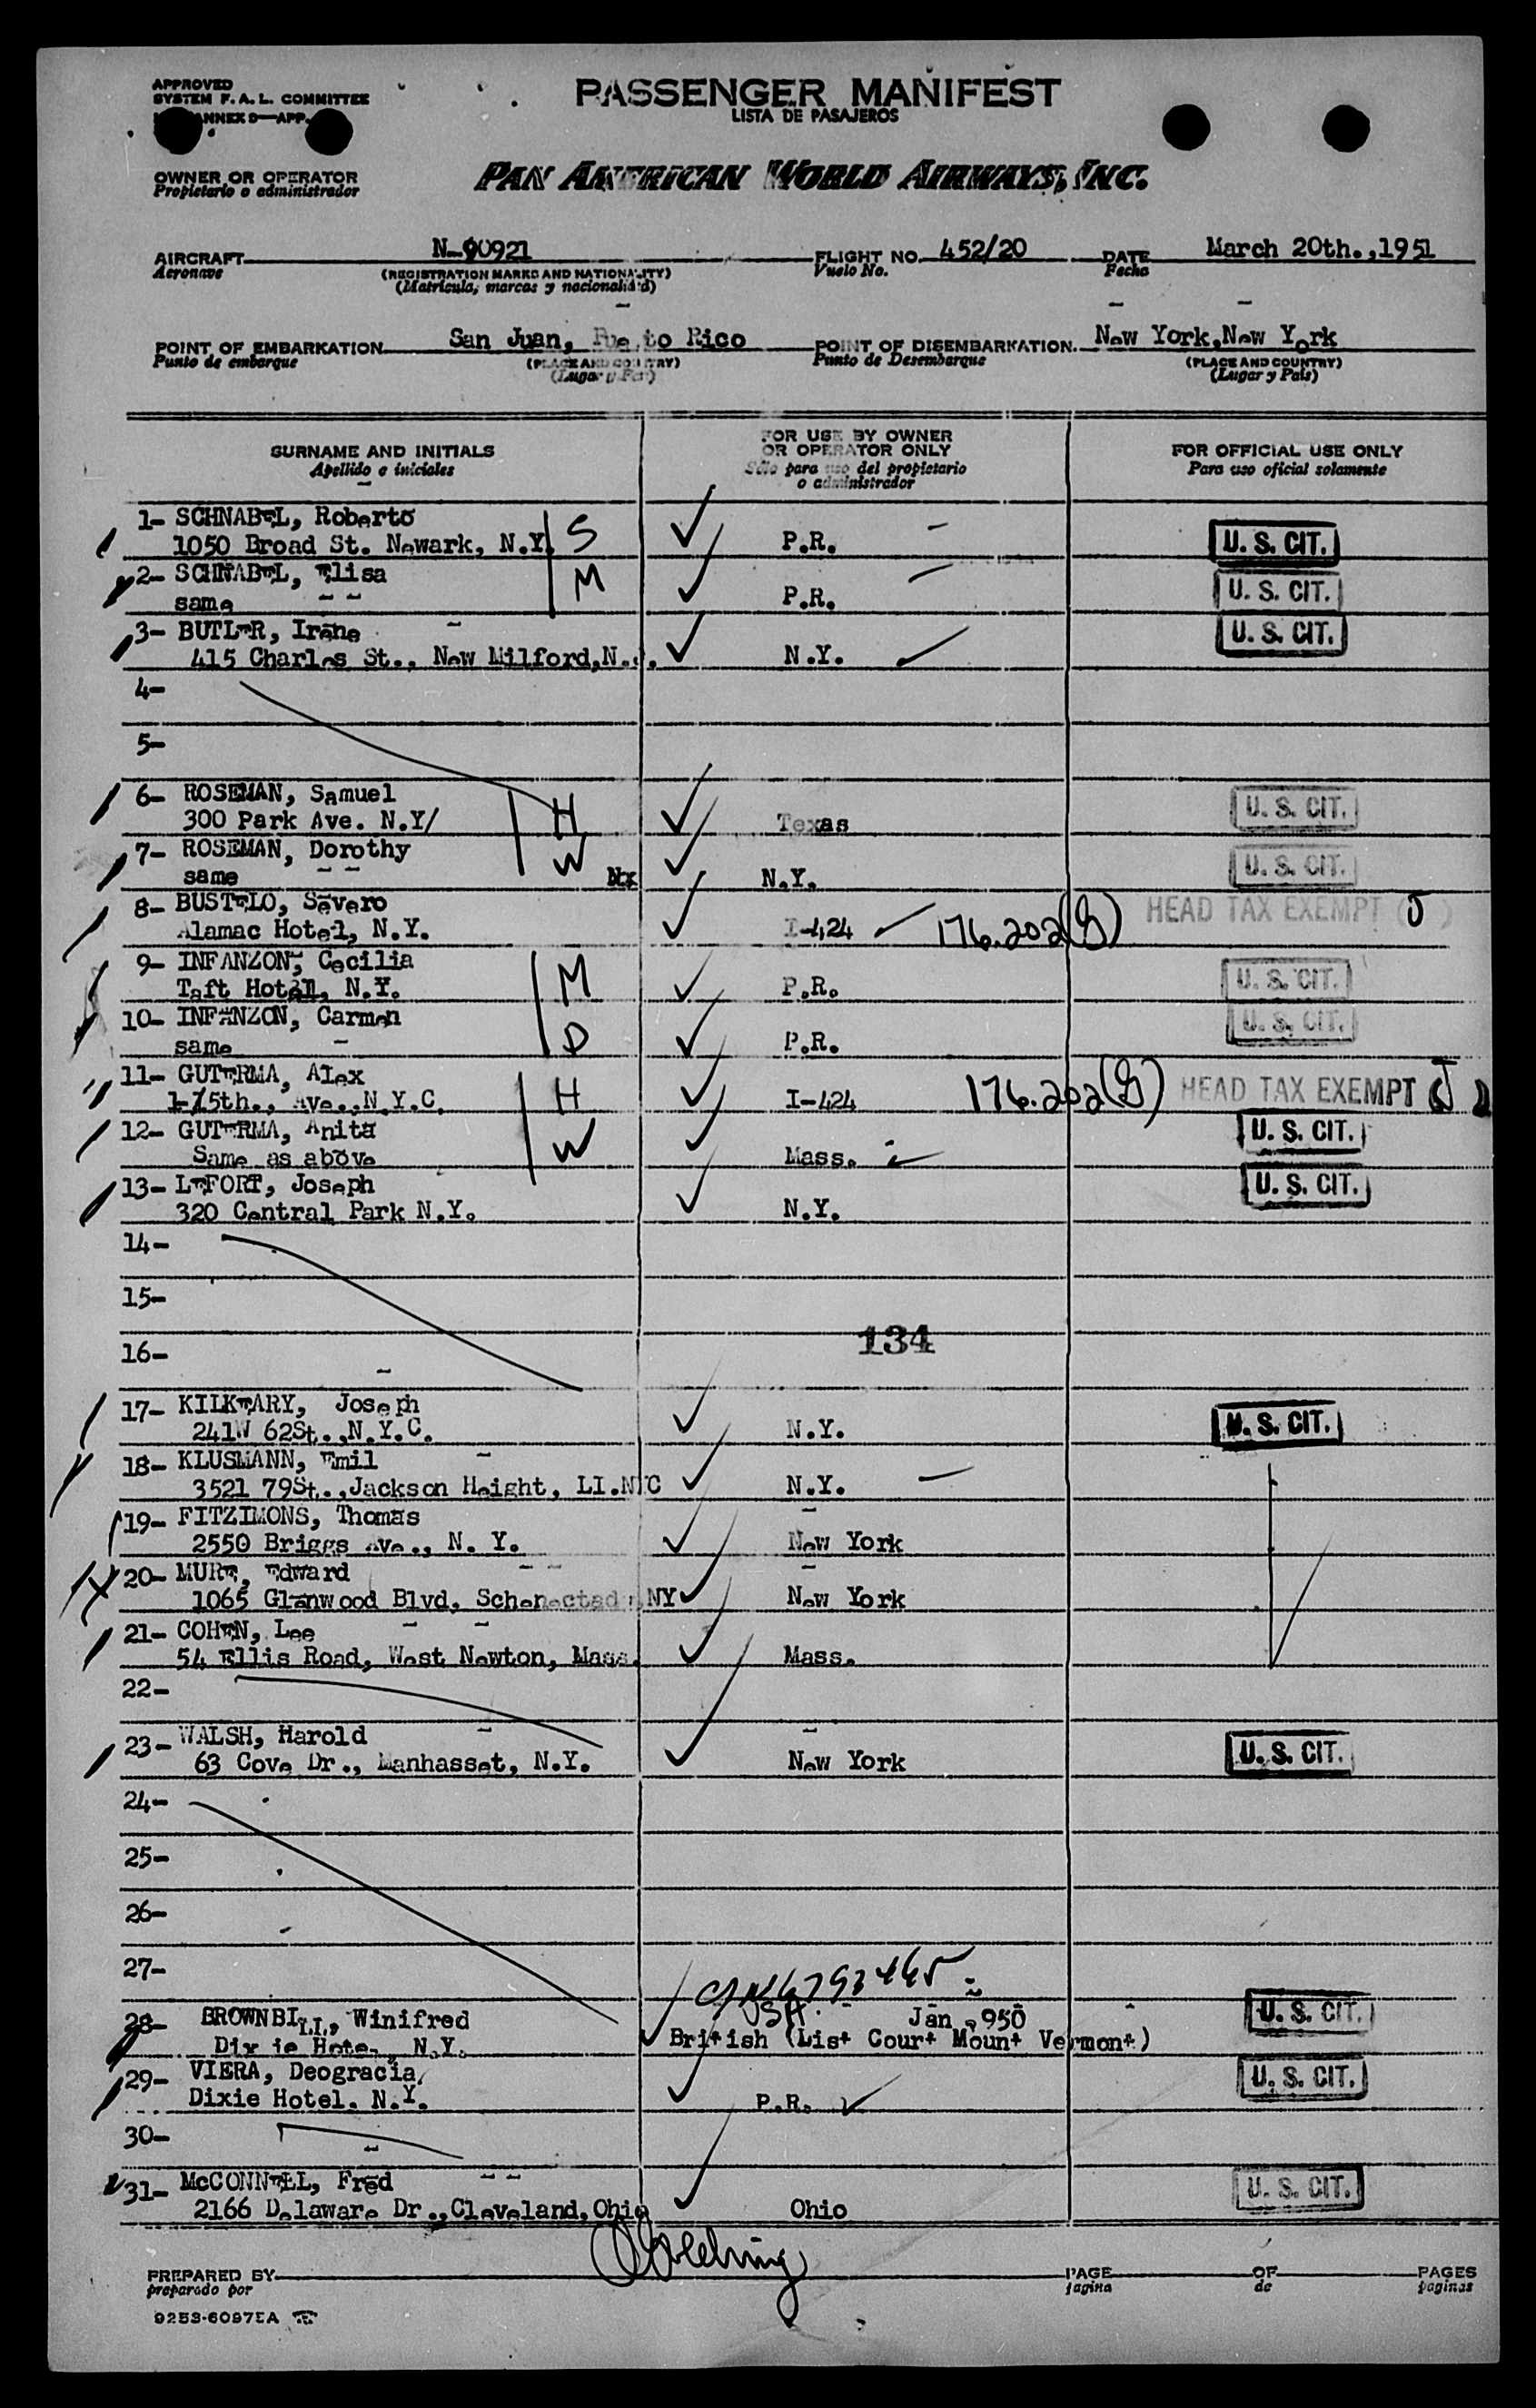 APPROVED
SYSTEM F. A. L. COMMITTEE
ANNEX 9—APP.
PASSENGER MANIFEST
LISTA DE PASAJEROS
OWNER OR OPERATOR
Propietario o administrador
PAN AMERICAN WORLD AIRWAYS, INC.
AIRCRAFT N-90921 FLIGHT NO. 452/20 DATE March 20th.,1951
Aeronave (REGISTRATION MARKS AND NATIONALITY) Vuelo No. Fecha
(Matricula, marcas y nacionalidad)
POINT OF EMBARKATION San Juan, Puerto Rico POINT OF DISEMBARKATION. New York,New York
Punto de embarque (PLACE AND COUNTRY) Punto de Desembarque (PLACE AND COUNTRY)
(Lugar y Pais) (Lugar y Pais)
SURNAME AND INITIALS FOR USE BY OWNER OR OPERATOR ONLY FOR OFFICIAL USE ONLY
Apellido e iniciales Sólo para uso del propietario o administrador Para uso oficial solamente
1- SCHNABEL, Roberto S
1050 Broad St. Newark, N.Y. P.R. U. S. CIT.
2- SCHNABEL, Elisa M
same P.R. U. S. CIT.
3- BUTLER, Irene
415 Charles St., New Milford,N.J. N.Y. U. S. CIT.
4-
5-
6- ROSEMAN, Samuel H
300 Park Ave. N.Y/ Texas U. S. CIT.
7- ROSEMAN, Dorothy W
same Nx N.Y. U. S. CIT.
8- BUSTELO, Severo
Alamac Hotel, N.Y. I-424 176.202(G) HEAD TAX EXEMPT (J)
9- INFANZON, Cecilia M
Taft Hotel, N.Y. P.R. U. S. CIT.
10- INFANZON, Carmen D
same P.R. U. S. CIT.
11- GUTERMA, Alex H
1-75th., Ave.,N.Y.C. I-424 176.202(G) HEAD TAX EXEMPT J
12- GUTERMA, Anita W
Same as above Mass. U. S. CIT.
13- LEFORT, Joseph
320 Central Park N.Y. N.Y. U. S. CIT.
14-
15-
134
16-
17- KILKEARY, Joseph
241W 62St.,N.Y.C. N.Y. U. S. CIT.
18- KLUSMANN, Emil
3521 79St.,Jackson Height, LI.NYC N.Y.
19- FITZIMONS, Thomas
2550 Briggs Ave., N. Y. New York
20- MURE, Edward
1065 Glenwood Blvd, Schenectady NY New York
21- COHEN, Lee
54 Ellis Road, West Newton, Mass. Mass.
22-
23- WALSH, Harold
63 Cove Dr., Manhasset, N.Y. New York U. S. CIT.
24-
25-
26-
27-
28- BROWNBILL, Winifred Jan 950 U. S. CIT.
Dixie Hotel, N.Y. British (List Court Mount Vermont)
29- VIERA, Deogracia
Dixie Hotel. N.Y. P.R. U. S. CIT.
30-
31- McCONNELL, Fred
2166 Delaware Dr.,Cleveland,Ohio Ohio U. S. CIT.
PREPARED BY PAGE OF PAGES
preparado por pagina de paginas
9253-6097EA